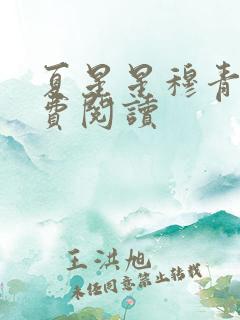 夏星星穆青
費閱讀
王洪旭
未经同意禁止转载